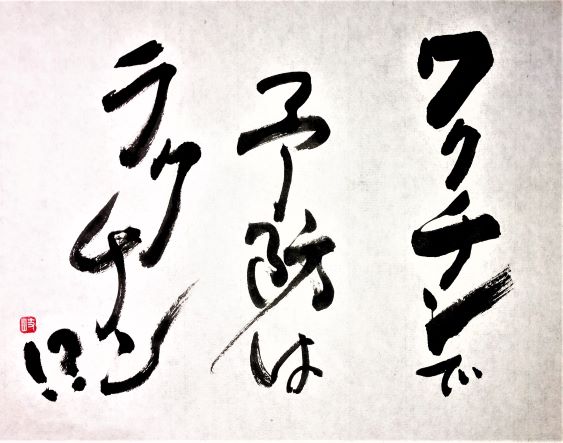 ワクチンで
予防は
ラクチン!?